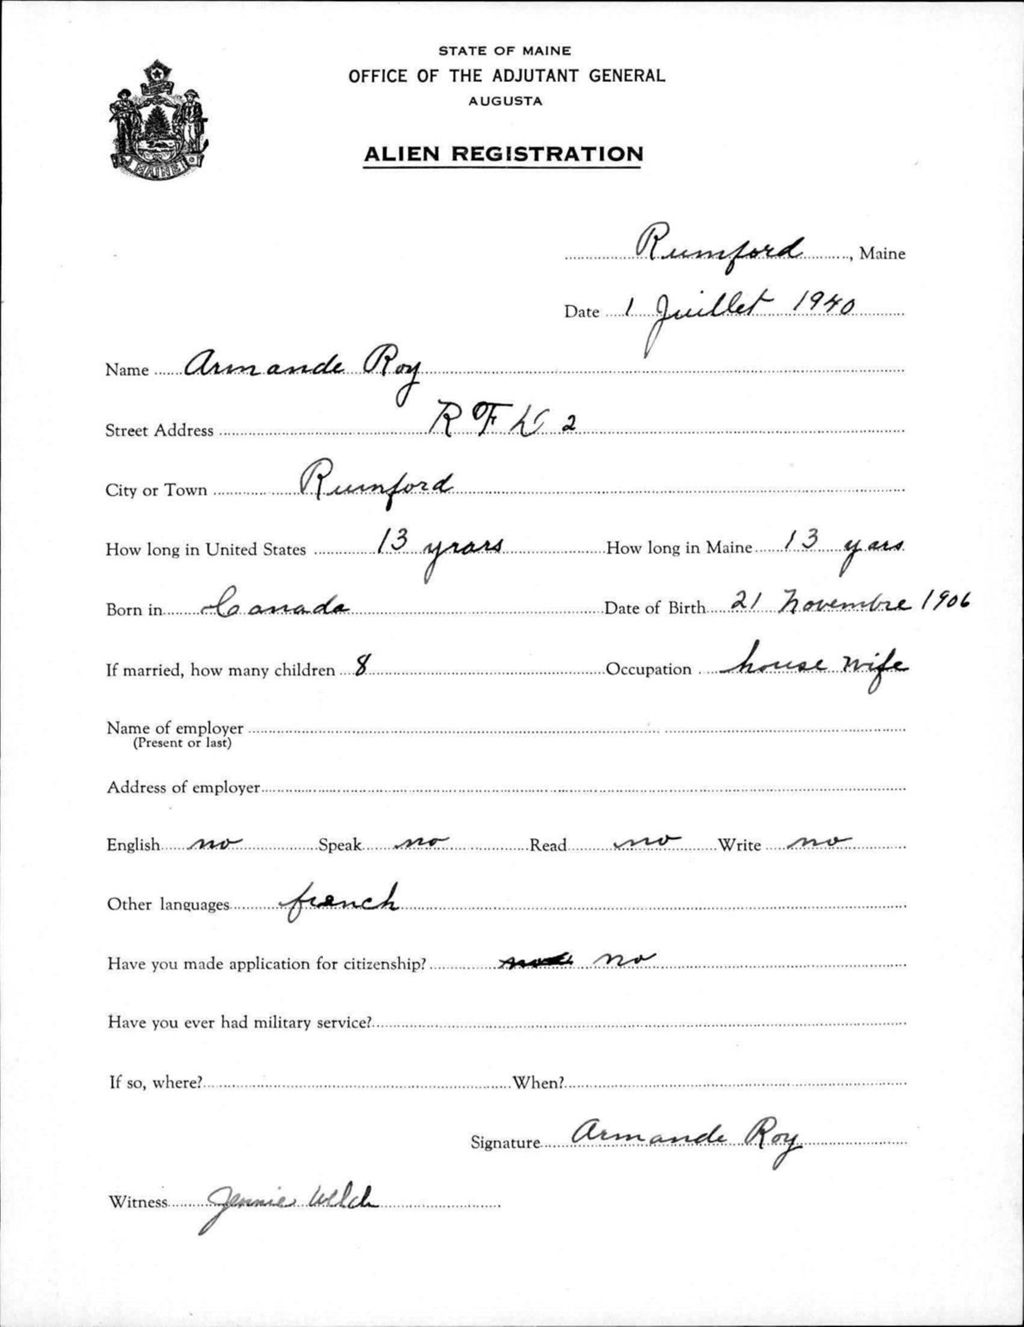 STATE OF MAINE
OFFICE OF THE ADJUTANT GENERAL
AUGUSTA
ALIEN REGISTRATION
MAINE
Rumford, Maine
Date 1 Juillet 1940
Name Armande Roy
Street Address R F D 2
City or Town Rumford
How long in United States 13 years How long in Maine 13 years
Born in Canada Date of Birth 21 Novembre 1906
If married, how many children 8 Occupation house wife
Name of employer
(Present or last)
Address of employer
English no Speak no Read no Write no
Other languages french
Have you made application for citizenship? no
Have you ever had military service?
If so, where? When?
Signature Armande Roy
Witness Jennie Welch